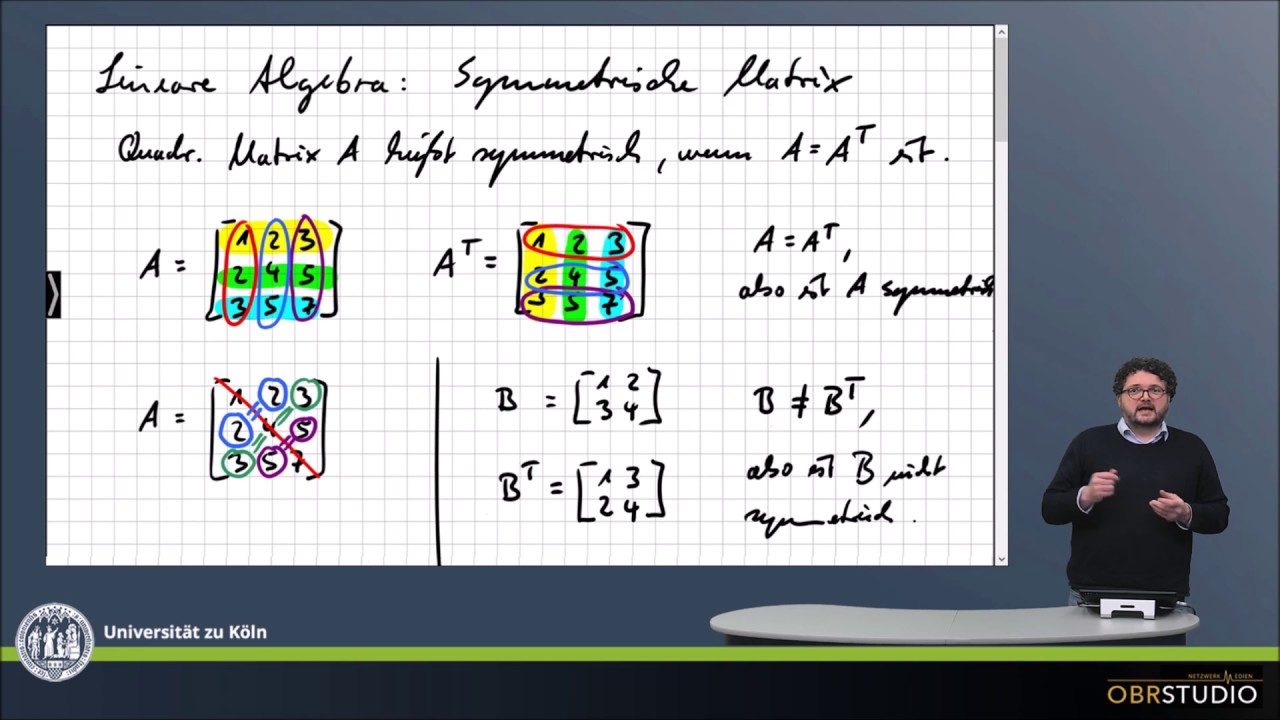 Lineare Algebra: Symmetrische Matrix
Quadr. Matrix A heißt symmetrisch, wenn A = A^T ist.
A = [1 2 3
2 4 5
3 5 7]
A^T = [1 2 3
2 4 5
3 5 7]
A = A^T,
also ist A symmetrisch
A = [1 2 3
2 4 5
3 5 7]
B = [1 2
3 4]
B^T = [1 3
2 4]
B ≠ B^T,
also ist B nicht
symmetrisch.
Universität zu Köln
NETZWERK MEDIEN
OBRSTUDIO